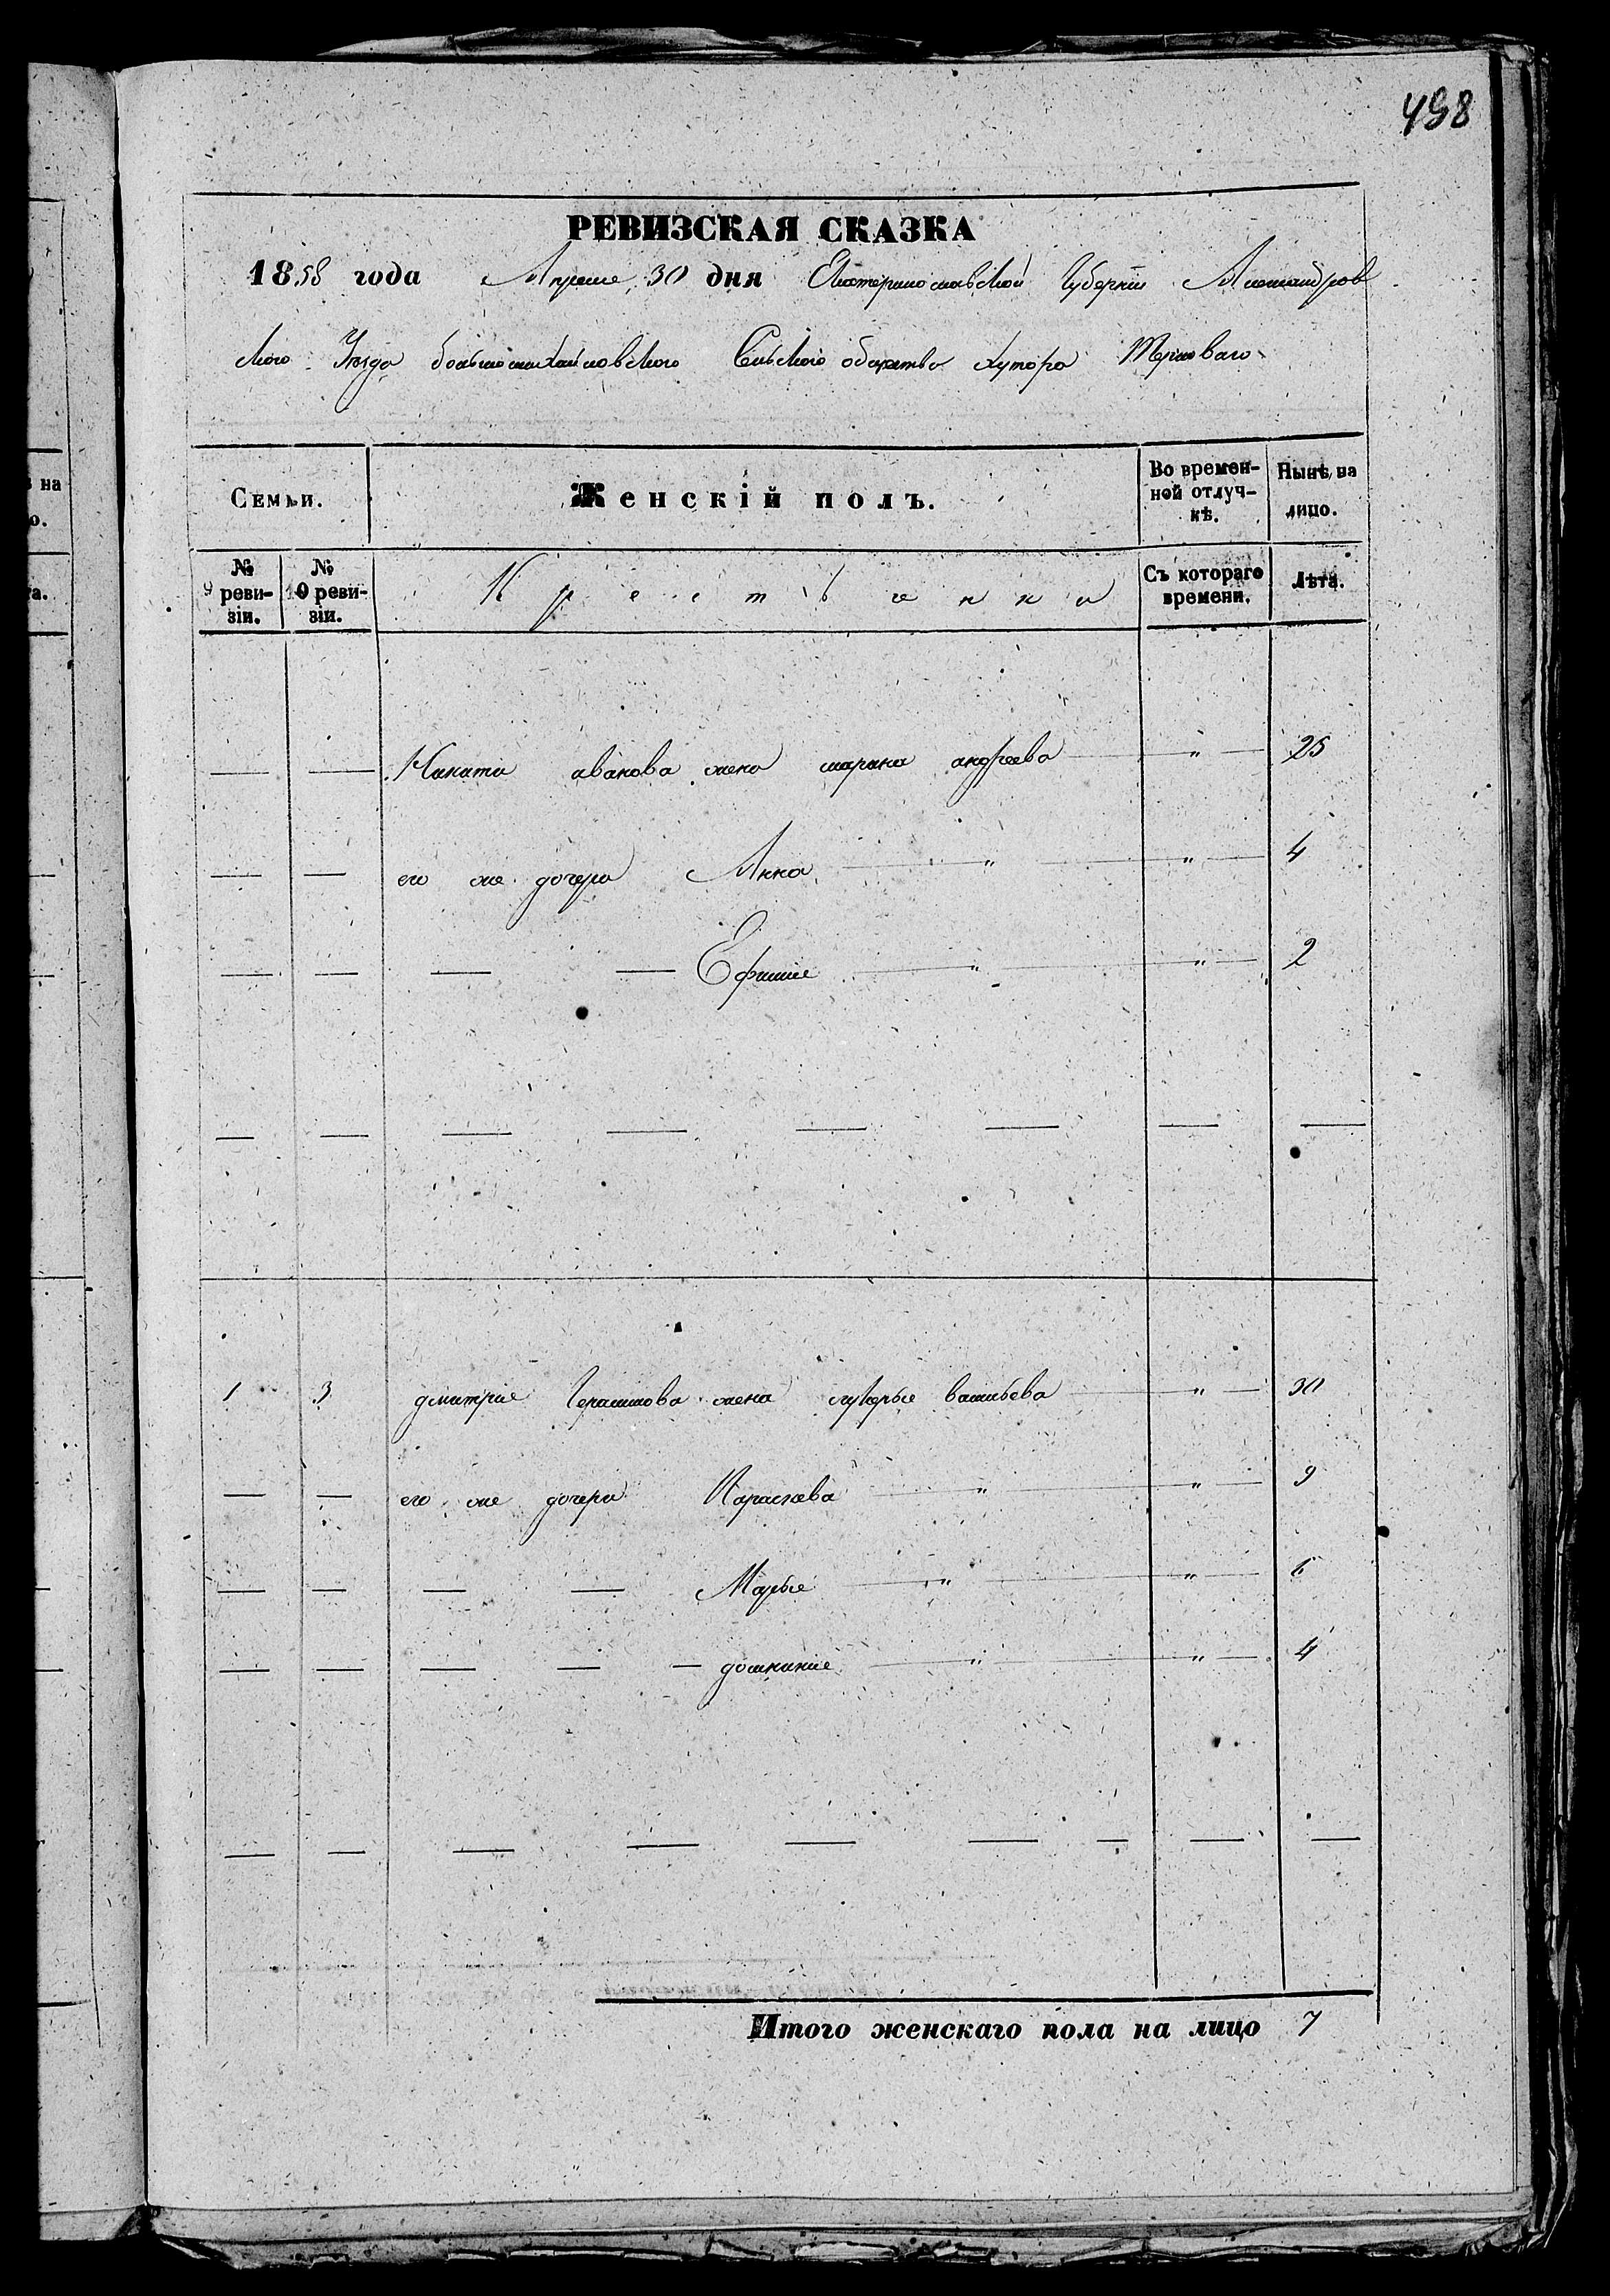 498
РЕВИЗСКАЯ СКАЗКА
1858 года Апреля 30 дня Екатеринославской Губернии Александров
ского Уезда большемихайловского Сельского общества хутора
Семьи. Женскій полъ. Во времен-ной отлуч-кѣ. Нынѣ на лицо.
№ 9 реви-зіи. № 10 реви-зіи. Крестьянки Съ котораго времени. Лѣта.
— — Никита иванова жена марина андреева — " — 25
— — его же дочери Анна — " — " — 4
— — — — Ефимия — " — " — 2
— — — — — — — —
1 3 дмитрия Герасимова жена лукерья васильева — " — 30
— — его же дочери Параскева — " — " — 9
— — — — Марья — " — " — 6
— — — — — домникия — " — " — 4
— — — — — — — — —
Итого женскаго пола на лицо 7
на
о.
та.